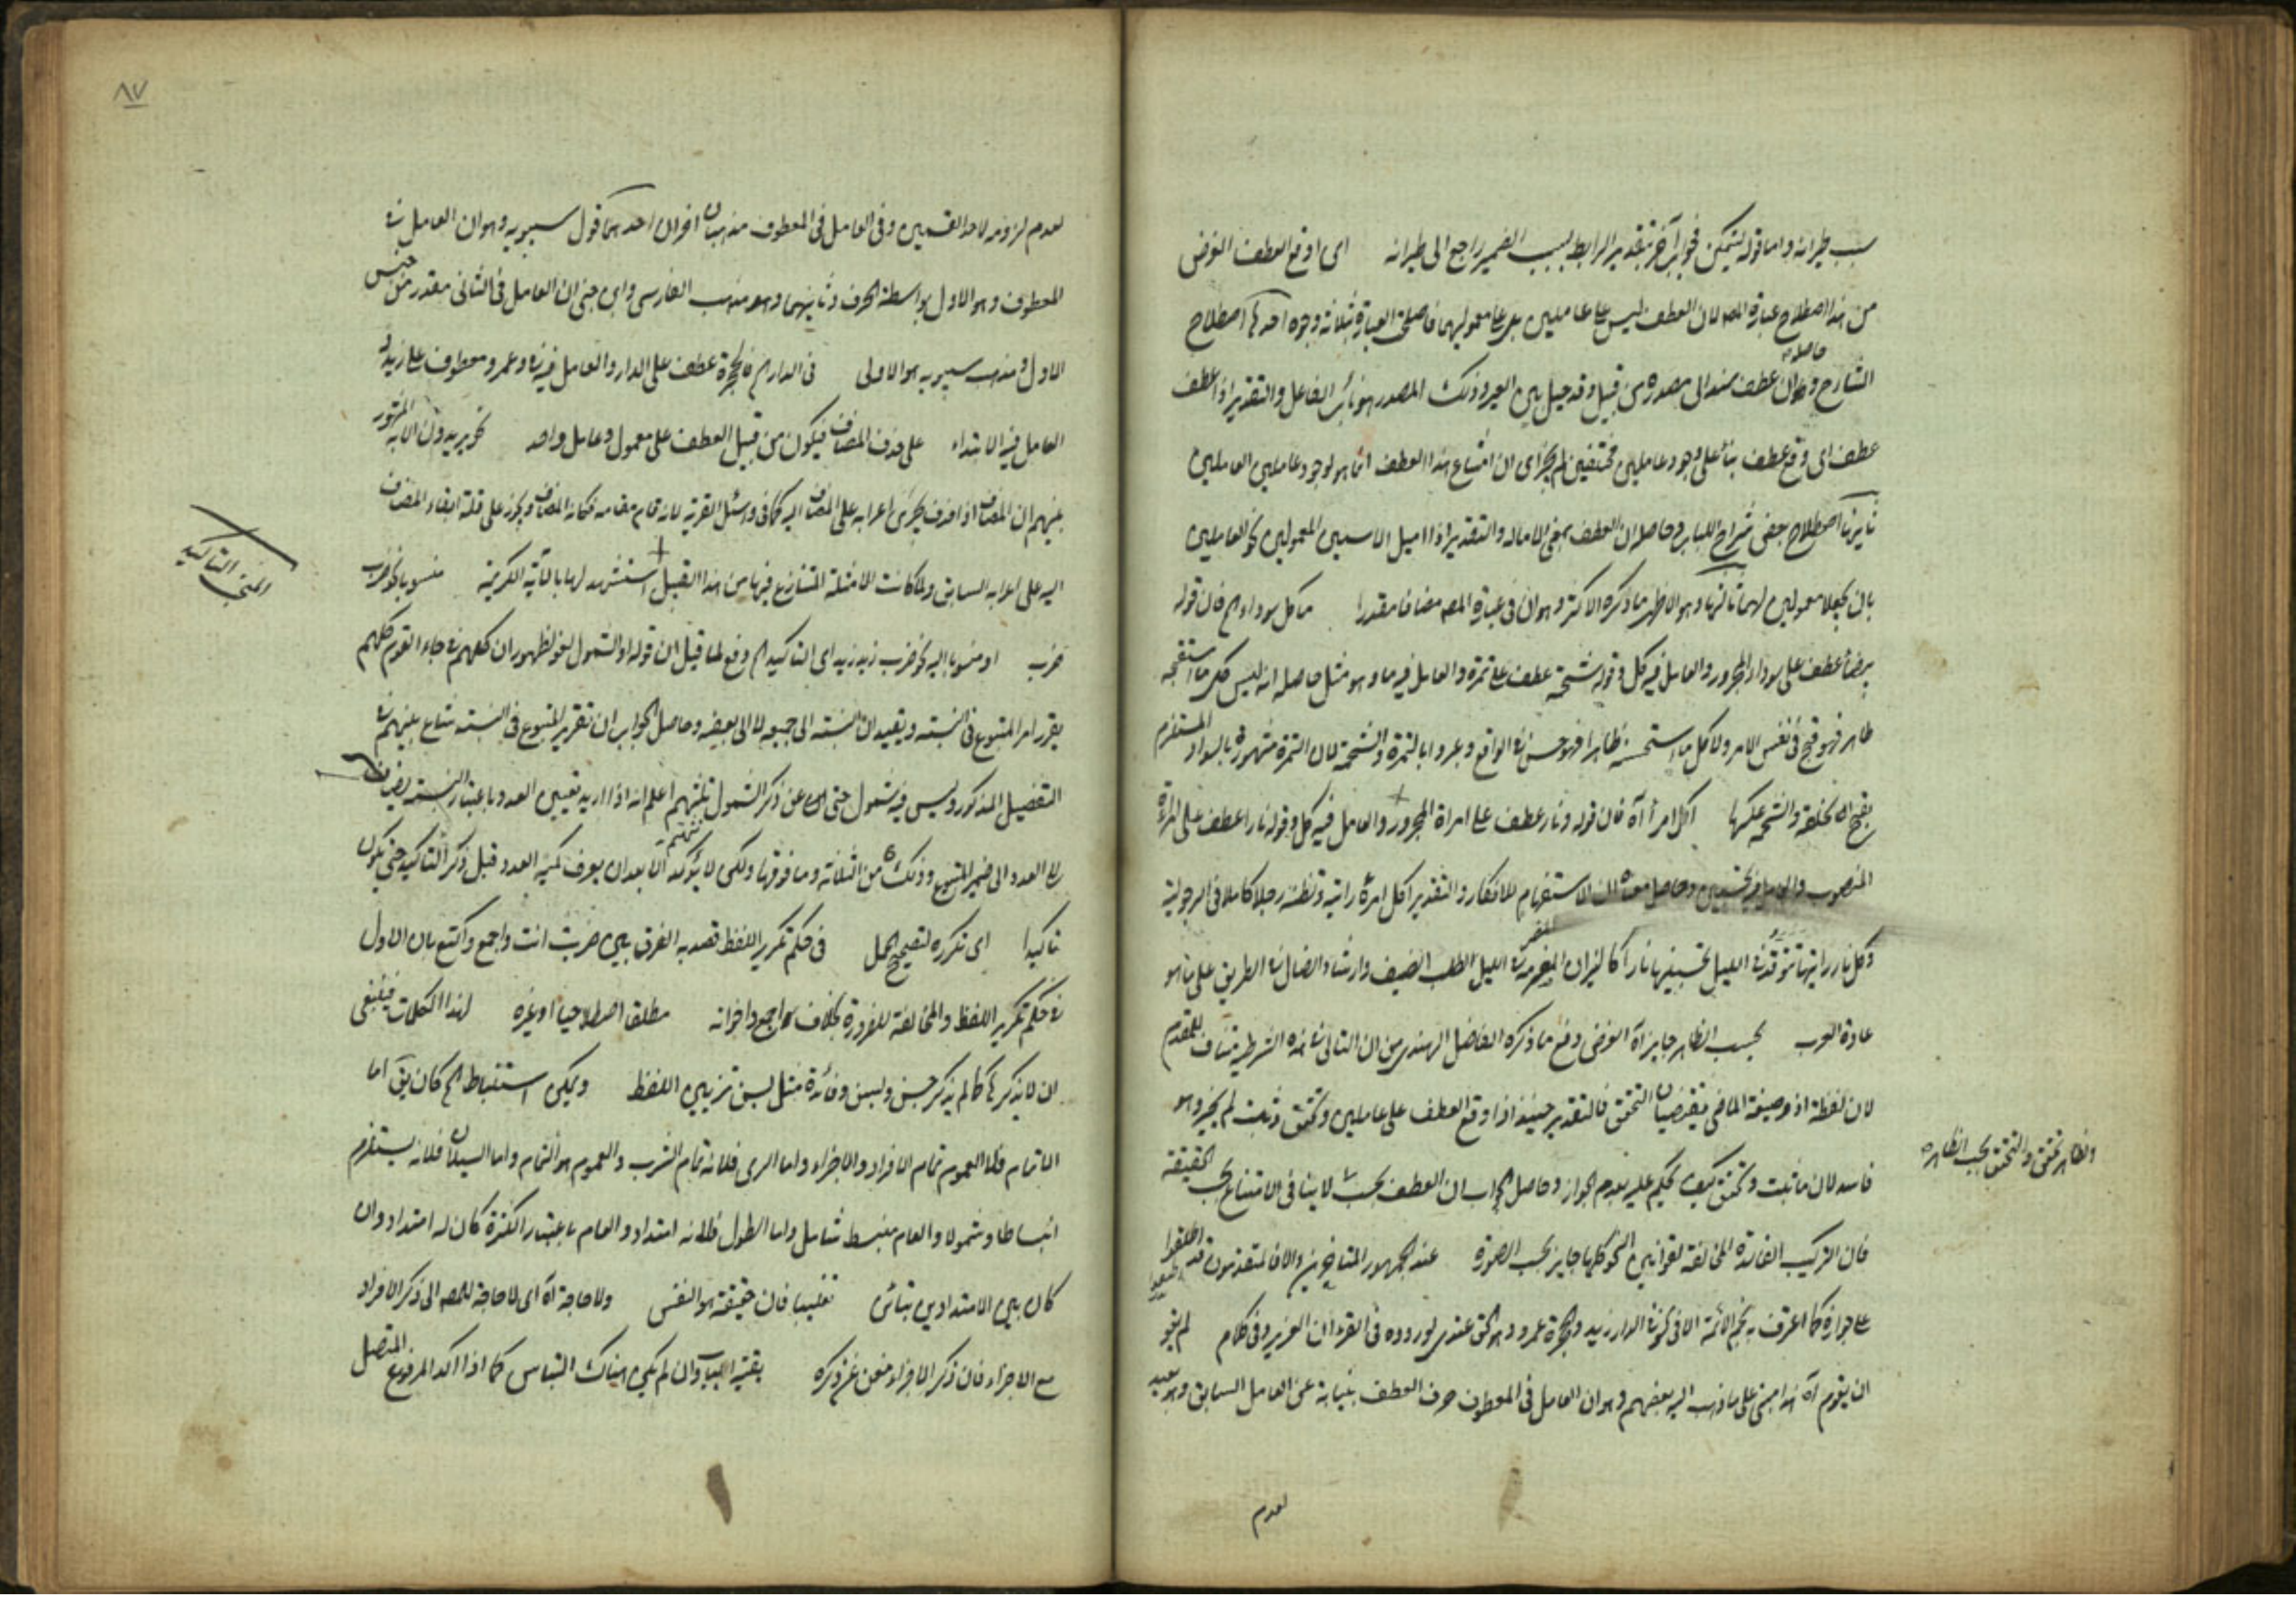 بسبب طيرانه واما قوله ليتمكن فجواب آخر بتقدير الرابط بسبب الضمير راجع الى طيرانه اى اوقع العطف الغرض
من هذا اصطلاح عبارة المصـ لان العطف ليس على عاملين بل على معموليهما فاصلح العبارة بثلاثة وجوه احدها اصطلاح
الشارح وحاصله ان عطف مسند الى مصدره من قبيل وقد حيل بين العير وذلك المصدر هو نائب الفاعل والتقدير اذا عطف
عطف اى وقع عطف بناء على وجود عاملين مختلفين لم يجز اى ان امتناع هذا العطف انما هو لوجود عاملين العاملين
ثانيها اصطلاح بعض شراح اللباب وحاصله ان العطف بمعنى الامالة والتقدير اذا اميل الاسمين المعمولين نحو العاملين
بان يجعلا معمولين لهما ثالثها وهو الاظهر ما ذكره الاكثر وهو ان فى عبارة المصـ مضافا مقدرا ما كل سوداء الخ فان قوله
بيضاء عطف على سوداء المجرور والعامل فيه كل وقوله شحمة عطف على تمرة والعامل فيه ما وهو مثل حاصله انه ليس كل ما استقبحه
ظاهرا فهو قبح فى نفس الامر ولا كل ما استحسنه ظاهرا فهو حسن فى الواقع وعبروا بالتمرة والشحمة لان التمرة مشهورة بالسواد المستلزم
بقبح الخلقة والشحم عكسها اكل امرأ آه فان قوله ونار عطف على امرأة المجرور والعامل فيه كل وقوله نارا عطف على امرأة
المنصوب والعامل فيه تحسبين وحاصل معناه ان الاستفهام للانكار والتقدير اكل امرأ رأيته وتظنه رجلا كاملا فى الرجولية
وكل نار رأيتها توقد فى الليل تحسبنها نارا كالنيران فى الليل لطلب الضيف وارشاد الضال فى الطريق على ما هو
عادة العرب بحسب الظاهر جايز آه الغرض دفع ما ذكره الفاضل الهندى من ان التالى فى هذه الشرطية مناف للمقدم
لان لفظة اذ وصيغة الماضى يقتضيان التحقق فالتقدير حينئذ اذا وقع العطف على عاملين وتحقق وثبت لم يجز وهو
فاسد لان ما ثبت وتحقق كيف يحكم عليه بعدم الجواز وحاصل الجواب ان العطف بحسب لا ينافى الامتناع بحسب الحقيقة
والظاهر تحقق والتحقق بحسب الظاهر
فان التركيب الفاسدة المخالفة لقوانين النحو كلها جايز بحسب الصورة عند الجمهور المتأخرين والا فالمتقدمون قد اطلقوا
على جوازه كما اعترف به نجم الائمة الا فى نحو فى الدار زيد والحجرة عمرو وهو الحق عندى لوروده فى القرءان العزيز وفى كلام لم يقو
ان يقوم آه هذا مبنى على ما ذهب اليه بعضهم وهو ان العامل فى المعطوف حرف العطف بنيابة عن العامل السابق وهو بعيد
لعدم
٨٧
لعدم لزومه لاحد القسمين وفى العامل فى المعطوف مذهبان اخران احدهما قول سيبويه وهو ان العامل فى
المعطوف وهو الاول بواسطة الحرف وثانيهما وهو مذهب الفارسى وابن جنى ان العامل فى الثانى مقدر من جنس
الاول ومذهب سيبويه هو الاولى فى الدار الخ فالحجرة عطف على الدار والعامل فيه فى وعمرو معطوف على زيد و
العامل فيه الابتداء على حذف المضاف فيكون من قبيل العطف على معمول وعامل واحد نحو يريدون الاية المشهور
بينهم ان المضاف اذا حذف يجرى اعرابه على المضاف اليه كما فى واسئل القرية لانه قام مقامه فكانه المضاف ويجوز على قلة ابقاء المضاف
اليه على اعرابه السابق ولما كانت الامثلة المتنازع فيها من هذا القبيل استشهد لها بالآية الكريمة منسوبا نحو ضرب
المنجى التاكيد
ضرب او منسوبا اليه نحو ضرب زيد زيد اى التاكيد الخ دفع لما قيل ان قوله او الشمول لغو لظهور ان كلهم فى جاء القوم كلهم
يقرر امر المتبوع فى النسبة ويفيد ان النسبة الى جميعه لا الى بعضه وحاصل الجواب ان تقرير المتبوع فى النسبة شايع بينهم فى
التفصيل المذكور وليس فيه شمول حتى عن ذكر الشمول ثلثتهم اعلم انه اذا اريد تعيين العدد باعتبار النسبة يضاف
العدد الى ضمير المتبوع وذلك من الثلاثة وما فوقها ولكن لا يؤكد الا بعد ان يعرف كمية العدد قبل ذكر التاكيد حتى يكون
تاكيدا اى تكرره لتصحيح الحمل فى حكم تكرير اللفظ قصد به الفرق بين ضربت انت واجمع واكتع بان الاول
فى حكم تكرير اللفظ والمخالفة للضرورة بخلاف اجمع واخواته مطلقا اصطلاحيا او غيره لهذا الكلمات فينبغى
ان لا يذكرها كما لم يذكر حسن وبسن وفائدة مثل بسن تزيين اللفظ ويمكن استنباط الخ كان يق اما
التمام فلما العموم تمام الافراد والاجزاء واما الرى فلانه تمام الشرب والعموم هو التمام واما السيلان فلانه يستلزم
انبساطا وشمولا والعام منبسط شامل واما الطول فلانه امتداد والعام باعتبار الكثرة كان له امتداد وان
كان بين الامتدادين تباين تغليبا فان حقيقة هو النفس ولا حاجة آه اى لا حاجة للمصـ الى ذكر الافراد
مع الاجزاء فان ذكر الاجزاء مغن عن ذكره بقية اللباب وان لم يكن هناك التباس كما اذا اكد المرفوع المتصل